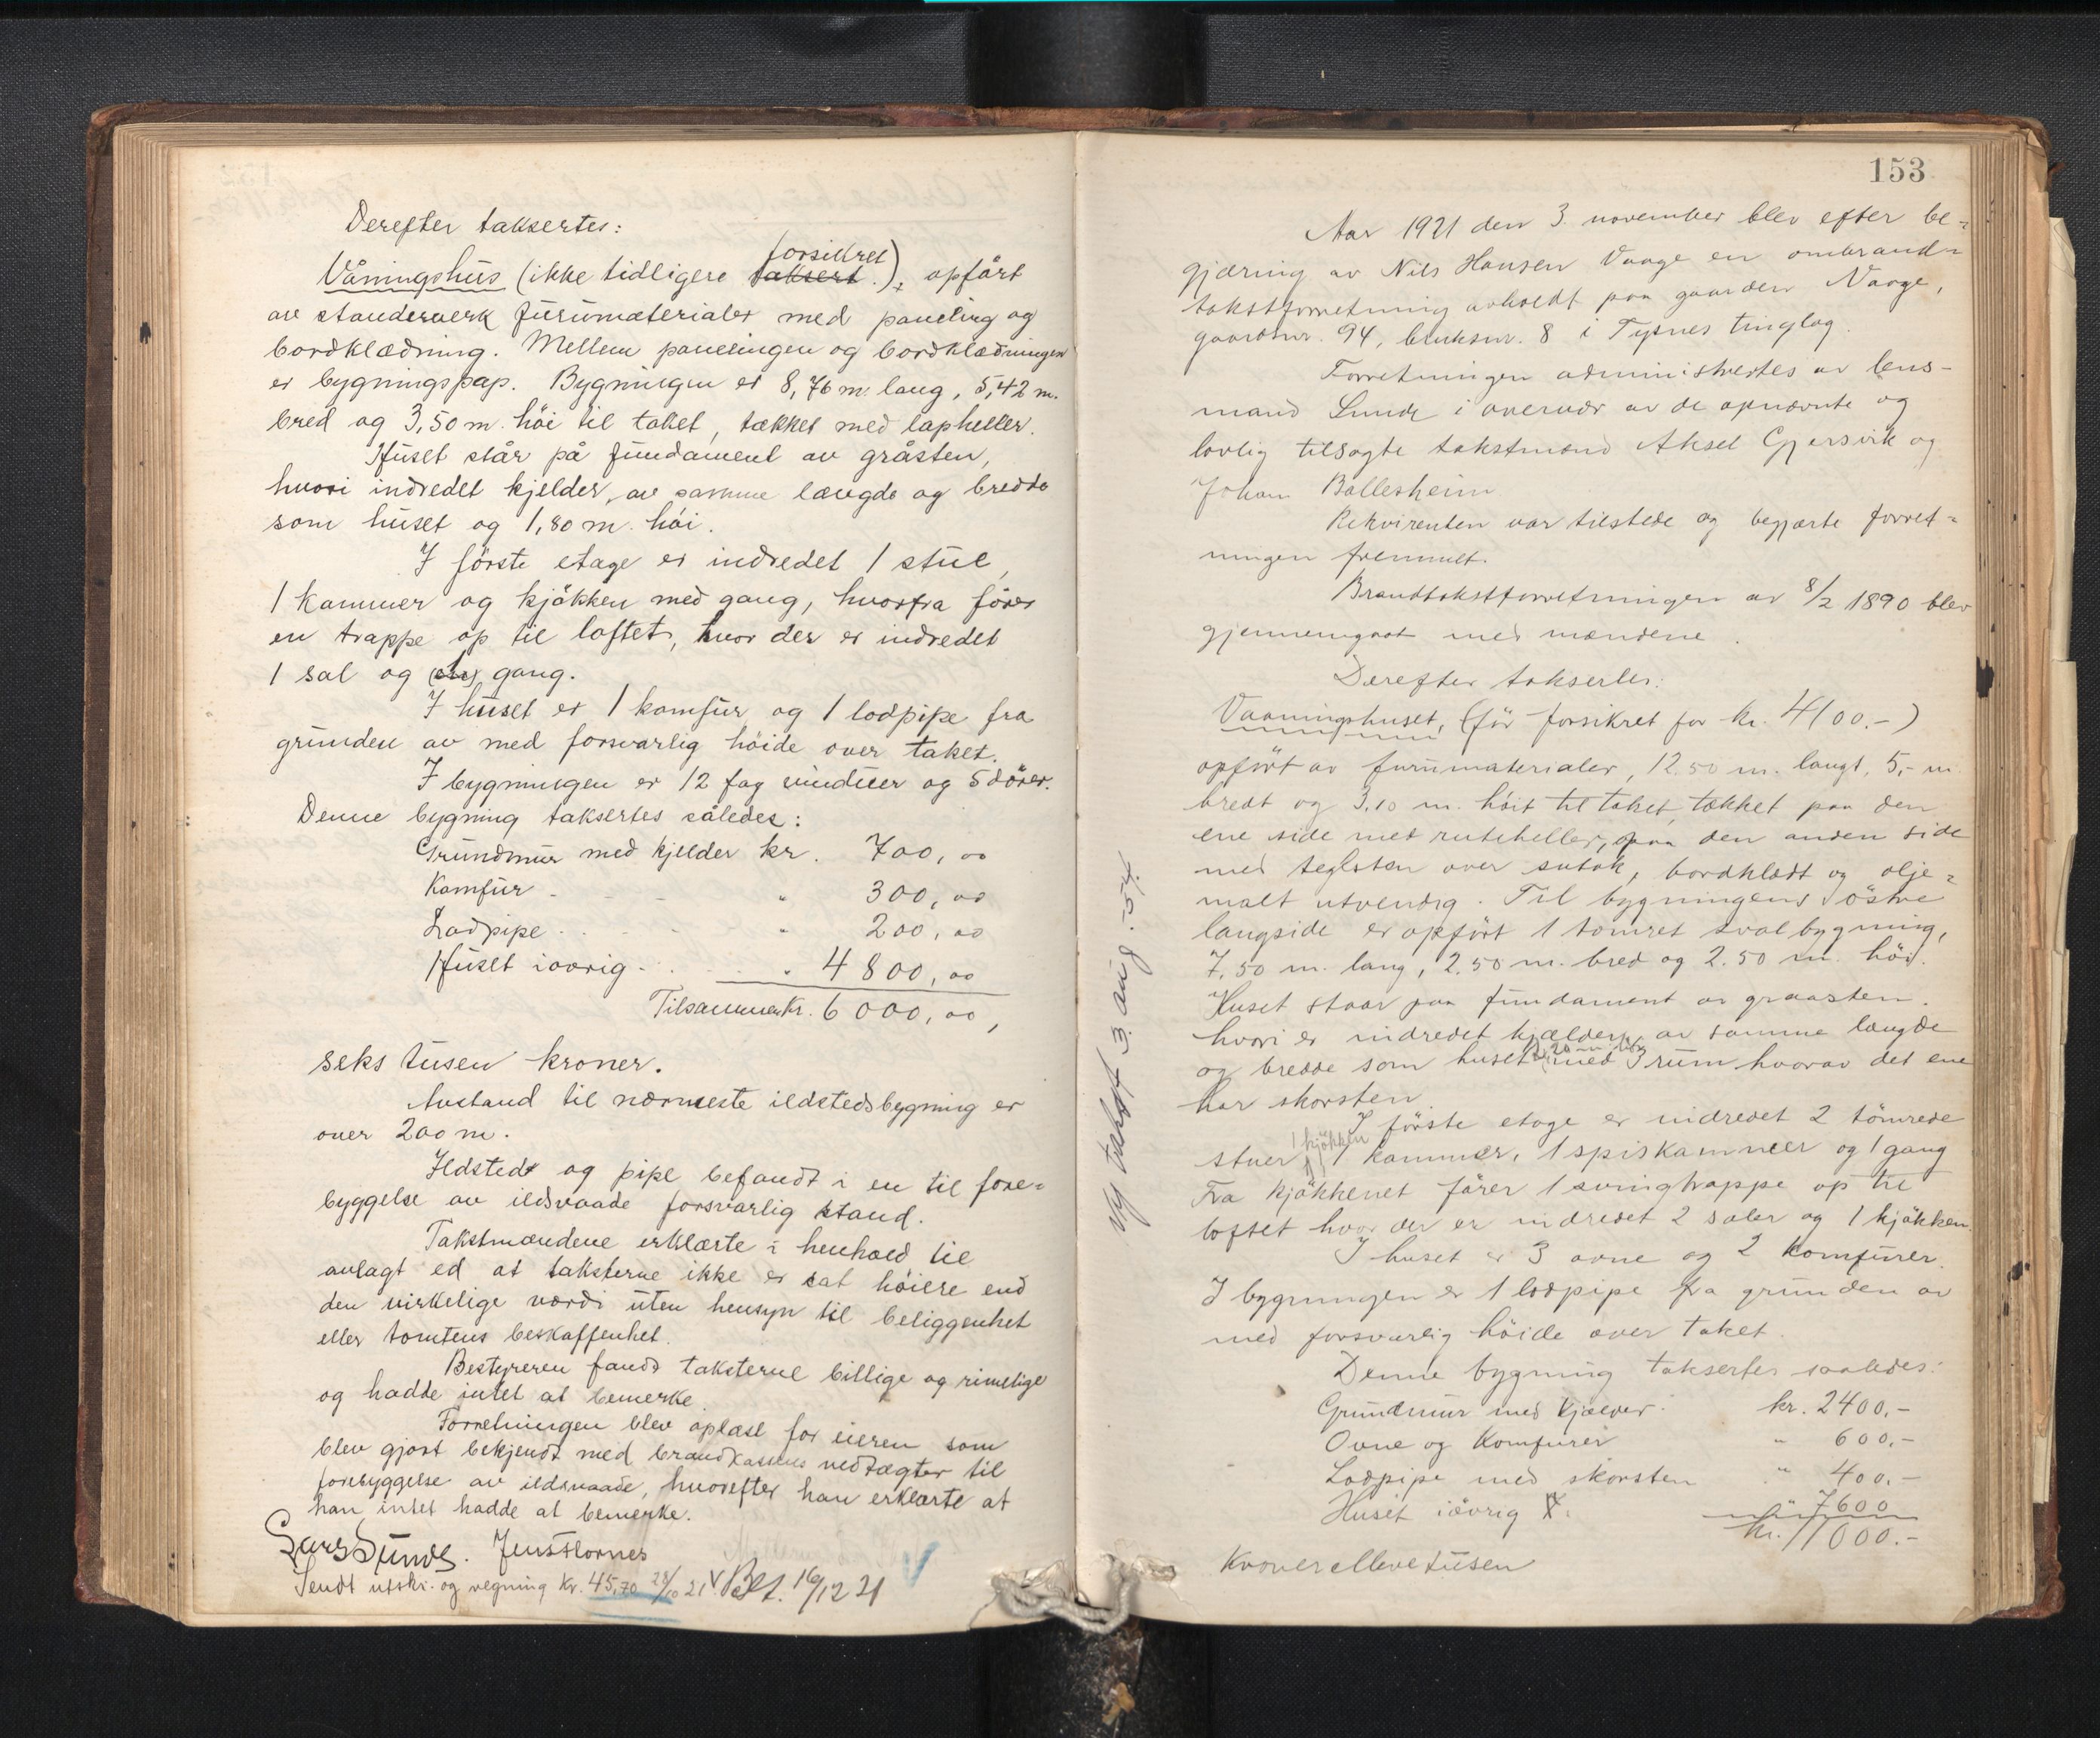 Derefter taksertes:
Våningshus (ikke tidligere taksert forsikret), opført
av standerverk furumaterialer med paneling og
bordklædning. Mellem panelingen og bordklædningen
er bygningspap. Bygningen er 8,76 m. lang, 5,42 m.
bred og 3,50 m. höi til taket, tækket med lapheller.
Huset står på fundament av gråsten,
hvori indredet kjelder, av samme længde og bredde
som huset og 1,80 m. höi.
I förste etage er indredet 1 stue,
1 kammer og kjökken med gang, hvorfra förer
en trappe op til loftet, hvor der er indredet
1 sal og gang.
I huset er 1 komfur og 1 lodpipe fra
grunden av med forsvarlig höide over taket.
I bygningen er 12 fag vinduer og 5 dörer.
Denne bygning taksertes således:
Grundmur med kjelder kr. 700,00
Komfur - - - " 300,00
Lodpipe - - - " 200,00
Huset iövrig - - - " 4800,00
Tilsammen kr. 6000,00,
seks tusen kroner.
Avstand til nærmeste ildstedsbygning er
over 200 m.
Ildsted og pipe befandt i en til fore-
byggelse av ildsvaade forsvarlig stand.
Takstmændene erklærte i henhold til
avlagt ed at taksterne ikke er sat höiere end
den virkelige værdi uten hensyn til beliggenhet
eller tomtens beskaffenhet.
Bestyreren fandt taksterne billige og rimelige
og hadde intet at bemerke.
Forretningen blev oplæst for eieren som
blev gjort bekjendt med brandkassens vedtægter til
forebyggelse av ildsvaade, hvorefter han erklærte at
han intet hadde at bemerke.
Lars Sunde. Jens Flornes
Sendt utskr. og regning kr. 45,70 28/10 21 Bet. 16/12 21
153
Aar 1921 den 3. november blev efter be-
gjæring av Nils Hansen Vaage en ombrand-
takstforretning avholdt paa gaarden Vaage,
gaardsnr. 94, bruksnr. 8 i Tysnes tinglag.
Forretningen administrertes av lens-
mand Sunde i overvær av de opnævnte og
lovlig tilsagte takstmænd Aksel Gjersvik og
Johan Ballesheim
Rekvirenten var tilstede og begjærte forret-
ningen fremmet.
Brandtakstforretningen av 8/2 1890 blev
gjennemgaat med mændene.
Derefter taksertes:
Vaaningshuset, (för forsikret for kr. 4100.-)
opfört av furumaterialer, 12.50 m. langt, 5,- m.
bredt og 3.10 m. höit til taket, tækket paa den
ene side med ruteheller, paa den anden side
med teglsten over sutak, bordklædt og olje-
malt utvendig. Til bygningens östre
langside er opfört 1 tömret svalbygning,
7.50 m. lang, 2.50 m. bred og 2.50 m. höi.
Huset staar paa fundament av graasten.
hvori er indredet kjælder av samme længde
og bredde som huset med 3 rum hvorav det ene
har skorsten.
I förste etage er indredet 2 tömrede
stuer, 1 kjökken 1 kammer, 1 spiskammer og 1 gang
Fra kjökkenet förer 1 svingtrappe op til
loftet hvor der er indredet 2 saler og 1 kjökken.
I huset er 3 ovne og 2 komfurer.
I bygningen er 1 lodpipe fra grunden av
med forsvarlig höide over taket.
Denne bygning taksertes saaledes:
Grundmur med kjælder. kr. 2400.-
Ovne og komfurer " 600.-
Lodpipe med skorsten " 400.-
Huset iövrig " 7600
kr. 11000.-
Kroner elleve tusen
Ny takst 3. aug. 54.